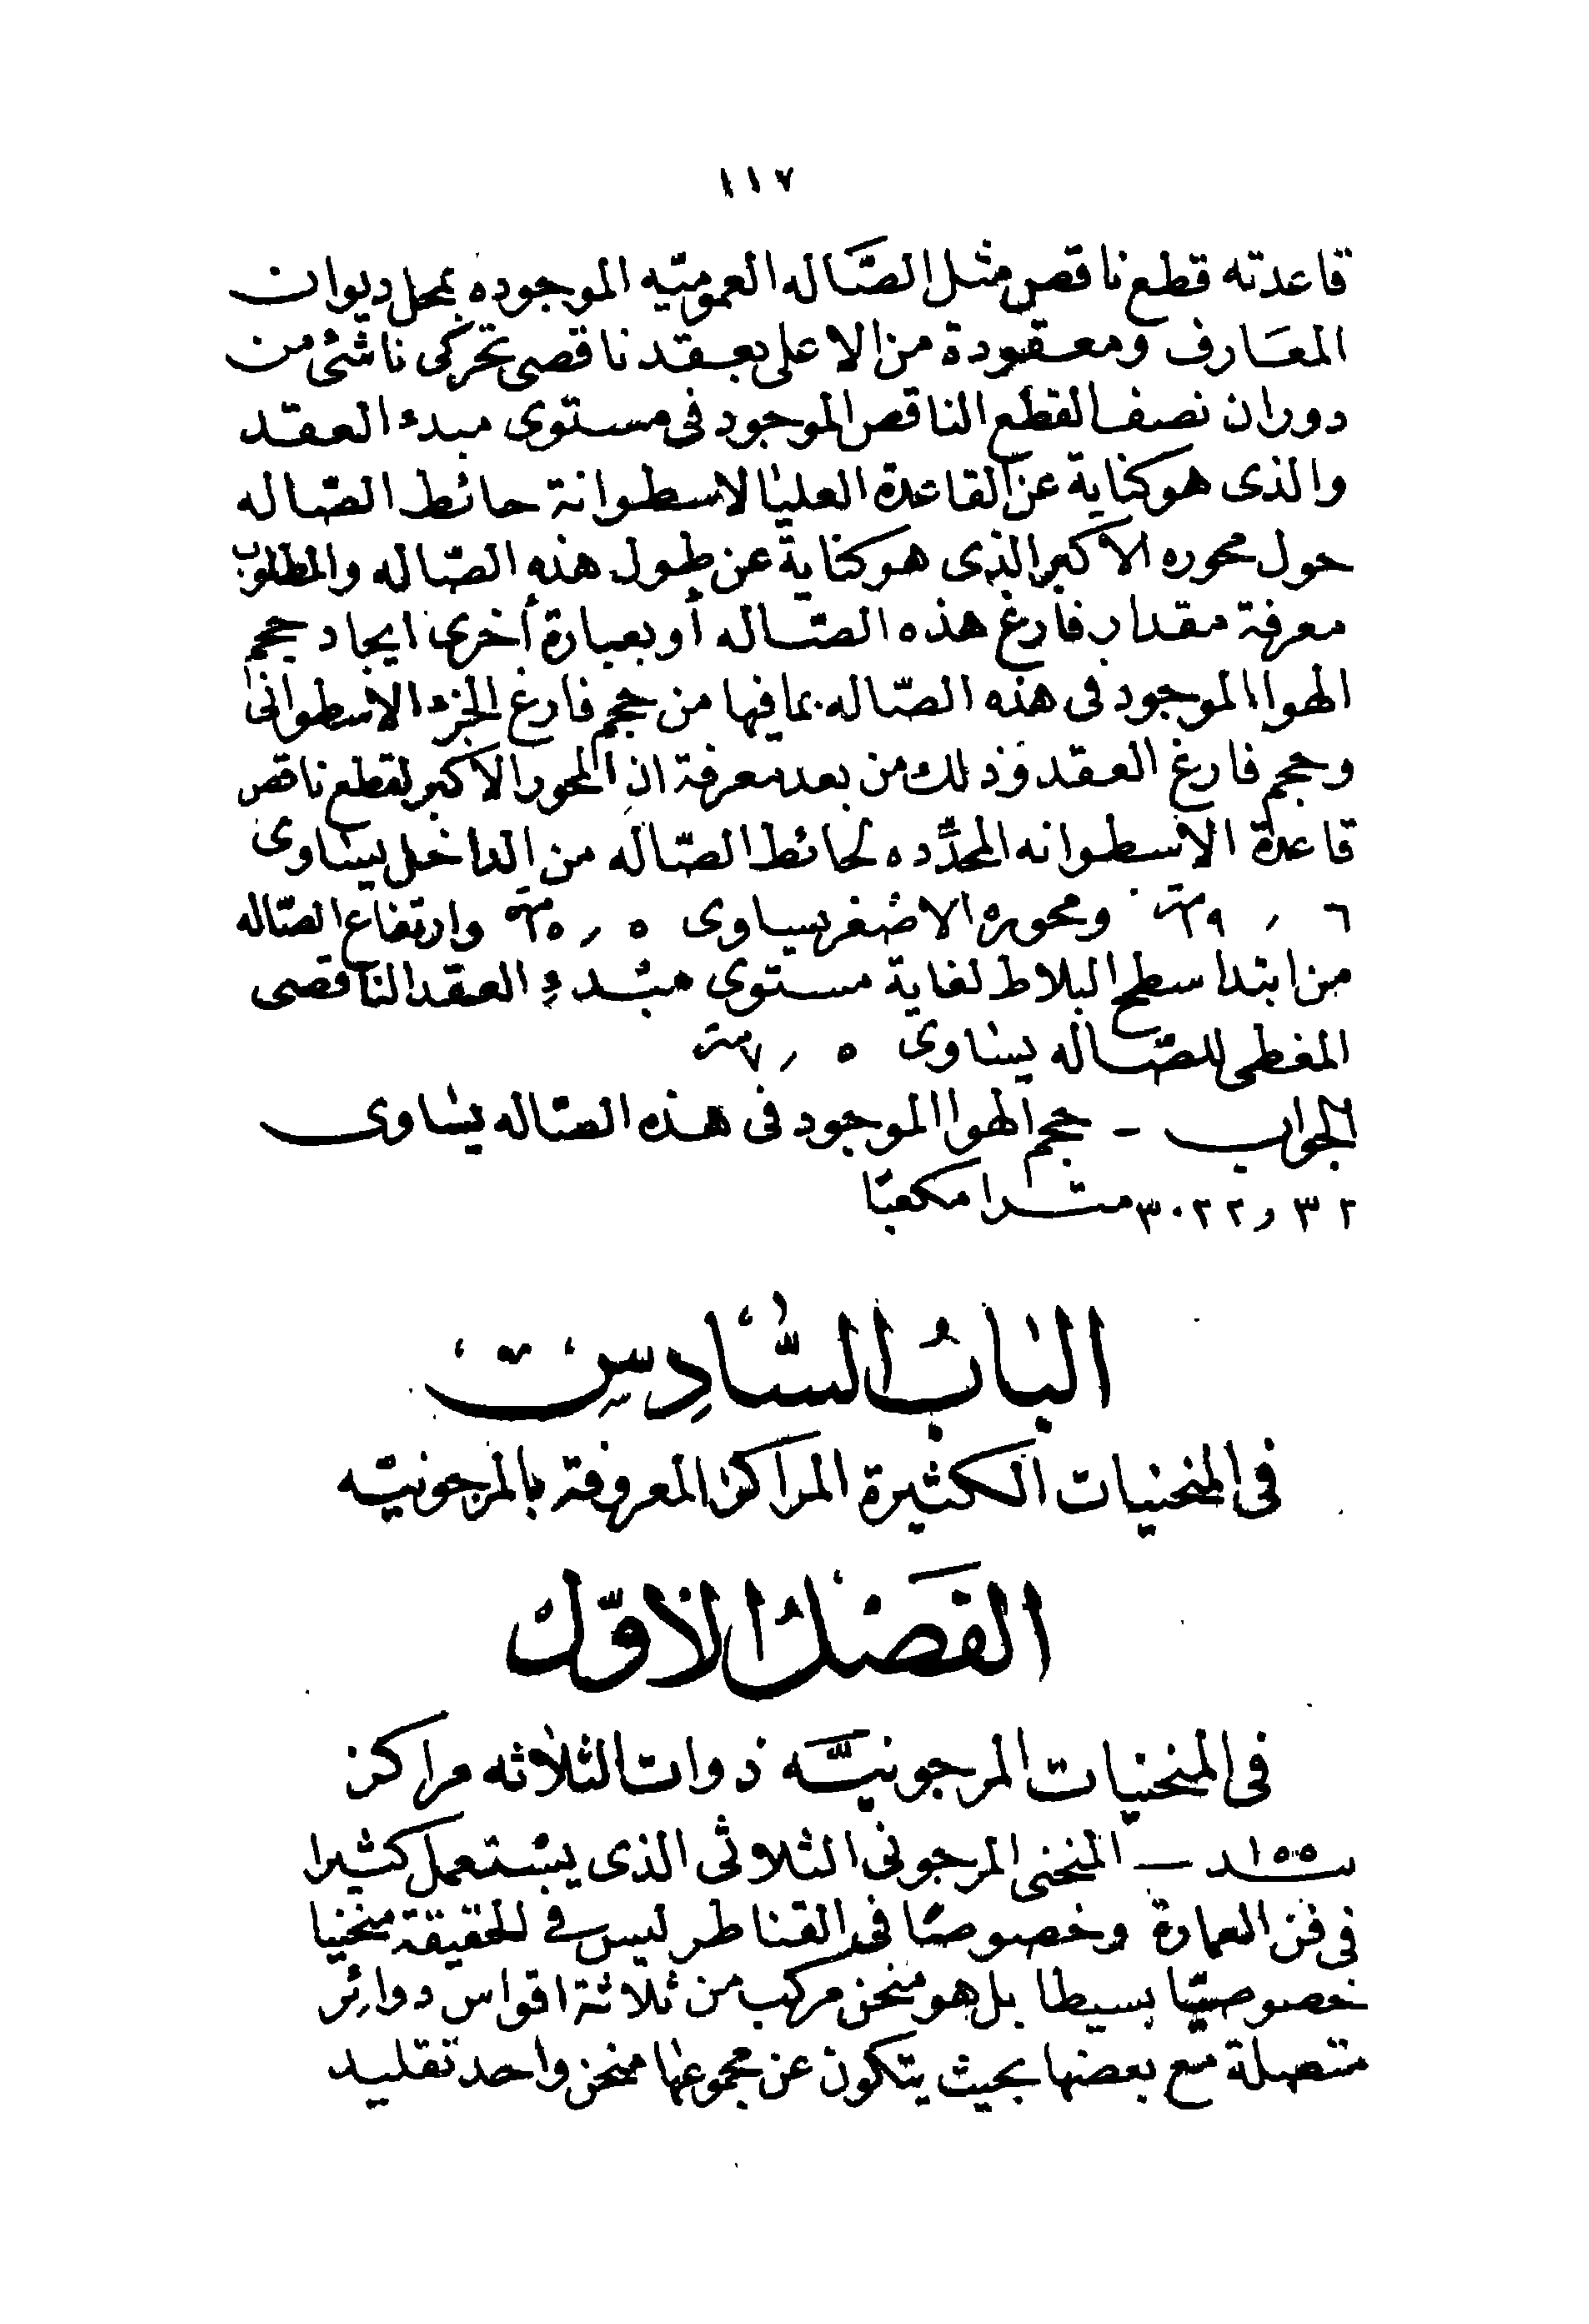 ١١٧
قاعدته قطع ناقص مثل الصّاله العموميّه الموجوده بمحل ديوان
المعَارف ومعقودة من الاعلى بعقد ناقصى تحركى ناشئ من
دوران نصف القطع الناقص الموجود فى مستوى مبدء العقد
والذى هو كناية عن القاعدة العليا لاسطوانة حائط الصّاله
حول محوره الاكبر الذى هو كناية عن طول هذه الصّاله والمطلوب
معرفة مقدار فارغ هذه الصّاله أو بعبارة أخرى ايجاد حجم
الهوا الموجود فى هذه الصّاله بما فيها من حجم فارغ الجزء الاسطوانى
وحجم فارغ العقد وَذلك من بعد معرفة ان المحور الاكبر لقطع ناقص
قاعدة الاسطوانه المحدِّده لحائط الصّاله من الداخل يساوى
٦ ر ٢٩ ومحوره الاصغر يساوى ٥ ر ١٥ وارتفاع الصّاله
من ابتدا سطح البلاط لغاية مستوى مبدءِ العقد الناقصى
المغطى للصّاله يساوى ٥ ر ٧
الجواب - حجم الهوا الموجود فى هذه الصّاله يساوى
٣٢ و ٣٠٢٢ مترا مكعبًا
البَابُ السَّادِس
فى المنحنيات الكثيرة المراكز المعروفة بالمرجونيّه
الفَصْلُ الاوّل
فى المنحنيات المرجونيَّه ذوات الثلاثه مراكز
١٥٥ — المنحنى المرجونى الثلاثى الذى يستعمل كثيرا
فى فن العمارة وخصوصًا فى القناطر ليس فى الحقيقة منحنيا
خصوصيًّا بسيطا بل هو منحن مركب من ثلاثة اقواس دوائر
متصلة مع بعضها بحيث يتكون عن مجموعها منحن واحد تقليد